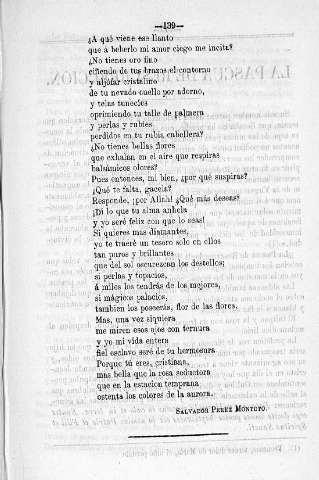 —439—
¿A qué viene ese llanto
que á beberlo mi amor ciego me incita?
¿No tienes oro fino
ciñendo de tus brazos el contorno
y aljófar cristalino
de tu nevado cuello por adorno,
y telas tunecíes
oprimiendo tu talle de palmera
y perlas y rubíes
perdidos en tu rubia cabellera?
¿No tienes bellas flores
que exhalan en el aire que respiras
balsámicos olores?
Pues entonces, mi bien, ¿por qué suspiras?
¿Qué te falta, gacela?
Responde, ¡por Allah! ¿Qué más deseas?
¡Dí lo que tu alma anhela
y yo seré feliz con que lo seas!
Si quieres mas diamantes,
yo te traeré un tesoro solo en ellos
tan puros y brillantes
que del sol oscurezcan los destellos;
si perlas y topacios,
á miles los tendrás de los mejores,
si mágicos palacios,
tambien los poseerás, flor de las flores.
Mas, una vez siquiera
me miren esos ojos con ternura
y yo mi vida entera
fiel esclavo seré de tu hermosura
Porque tú eres, cristiana,
mas bella que la rosa seductora
que en la estacion temprana
ostenta los colores de la aurora.
SALVADOR PEREZ MONTOTO.